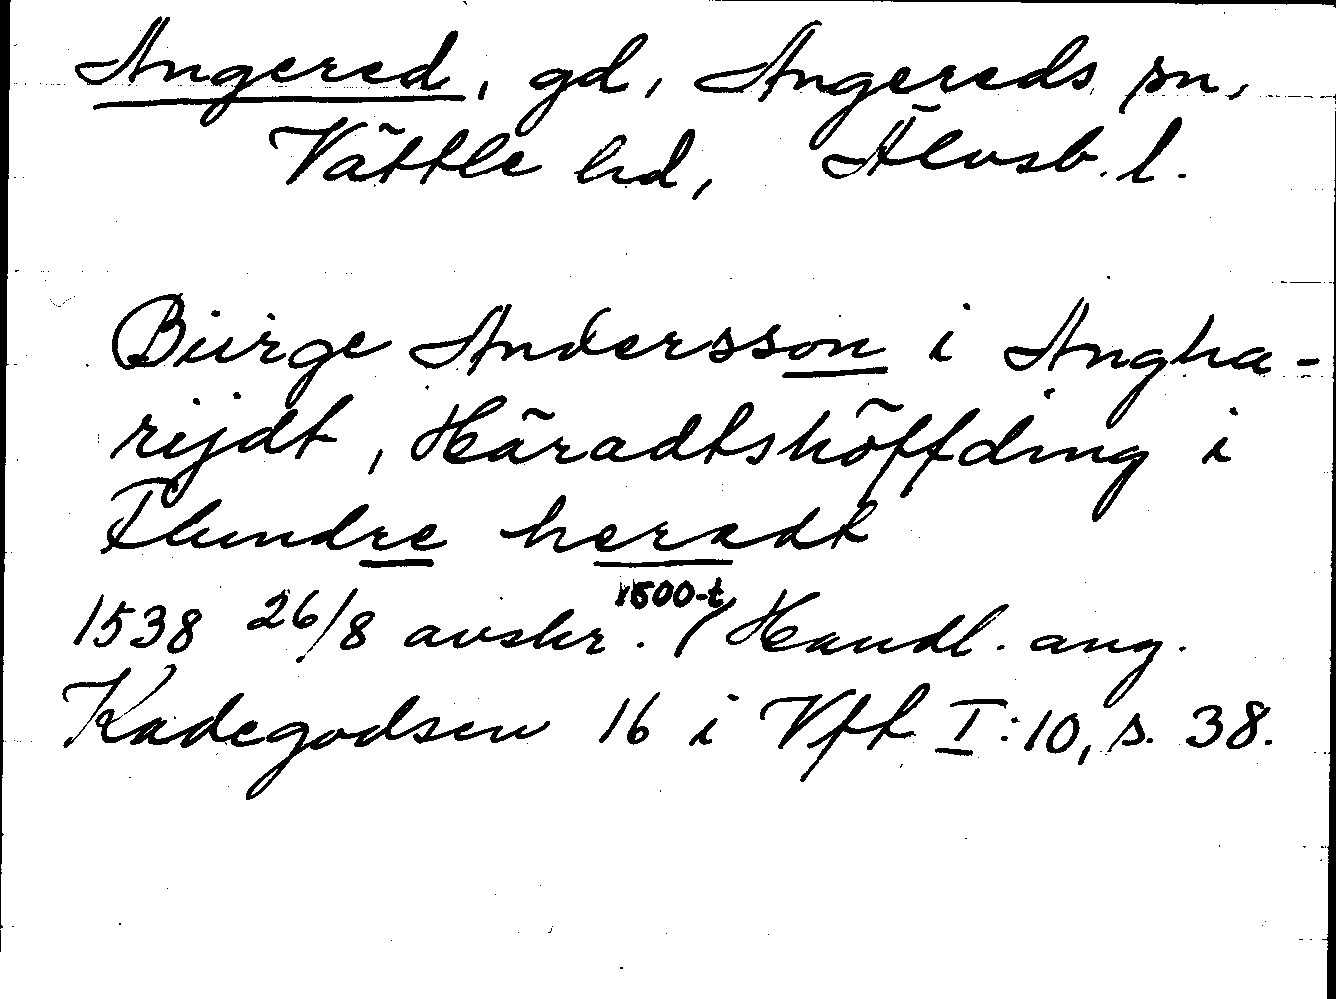 Angered, gd, Angereds sn,
Vättle hd, Älvsb. l.
Biirge Andersson i Angha-
rijdt, Häradtshöffding i
Flundre heradt
1500-t
1538 26/8 avskr. / Handl. ang.
Kadegodsen 16 i Vft I:10, s. 38.